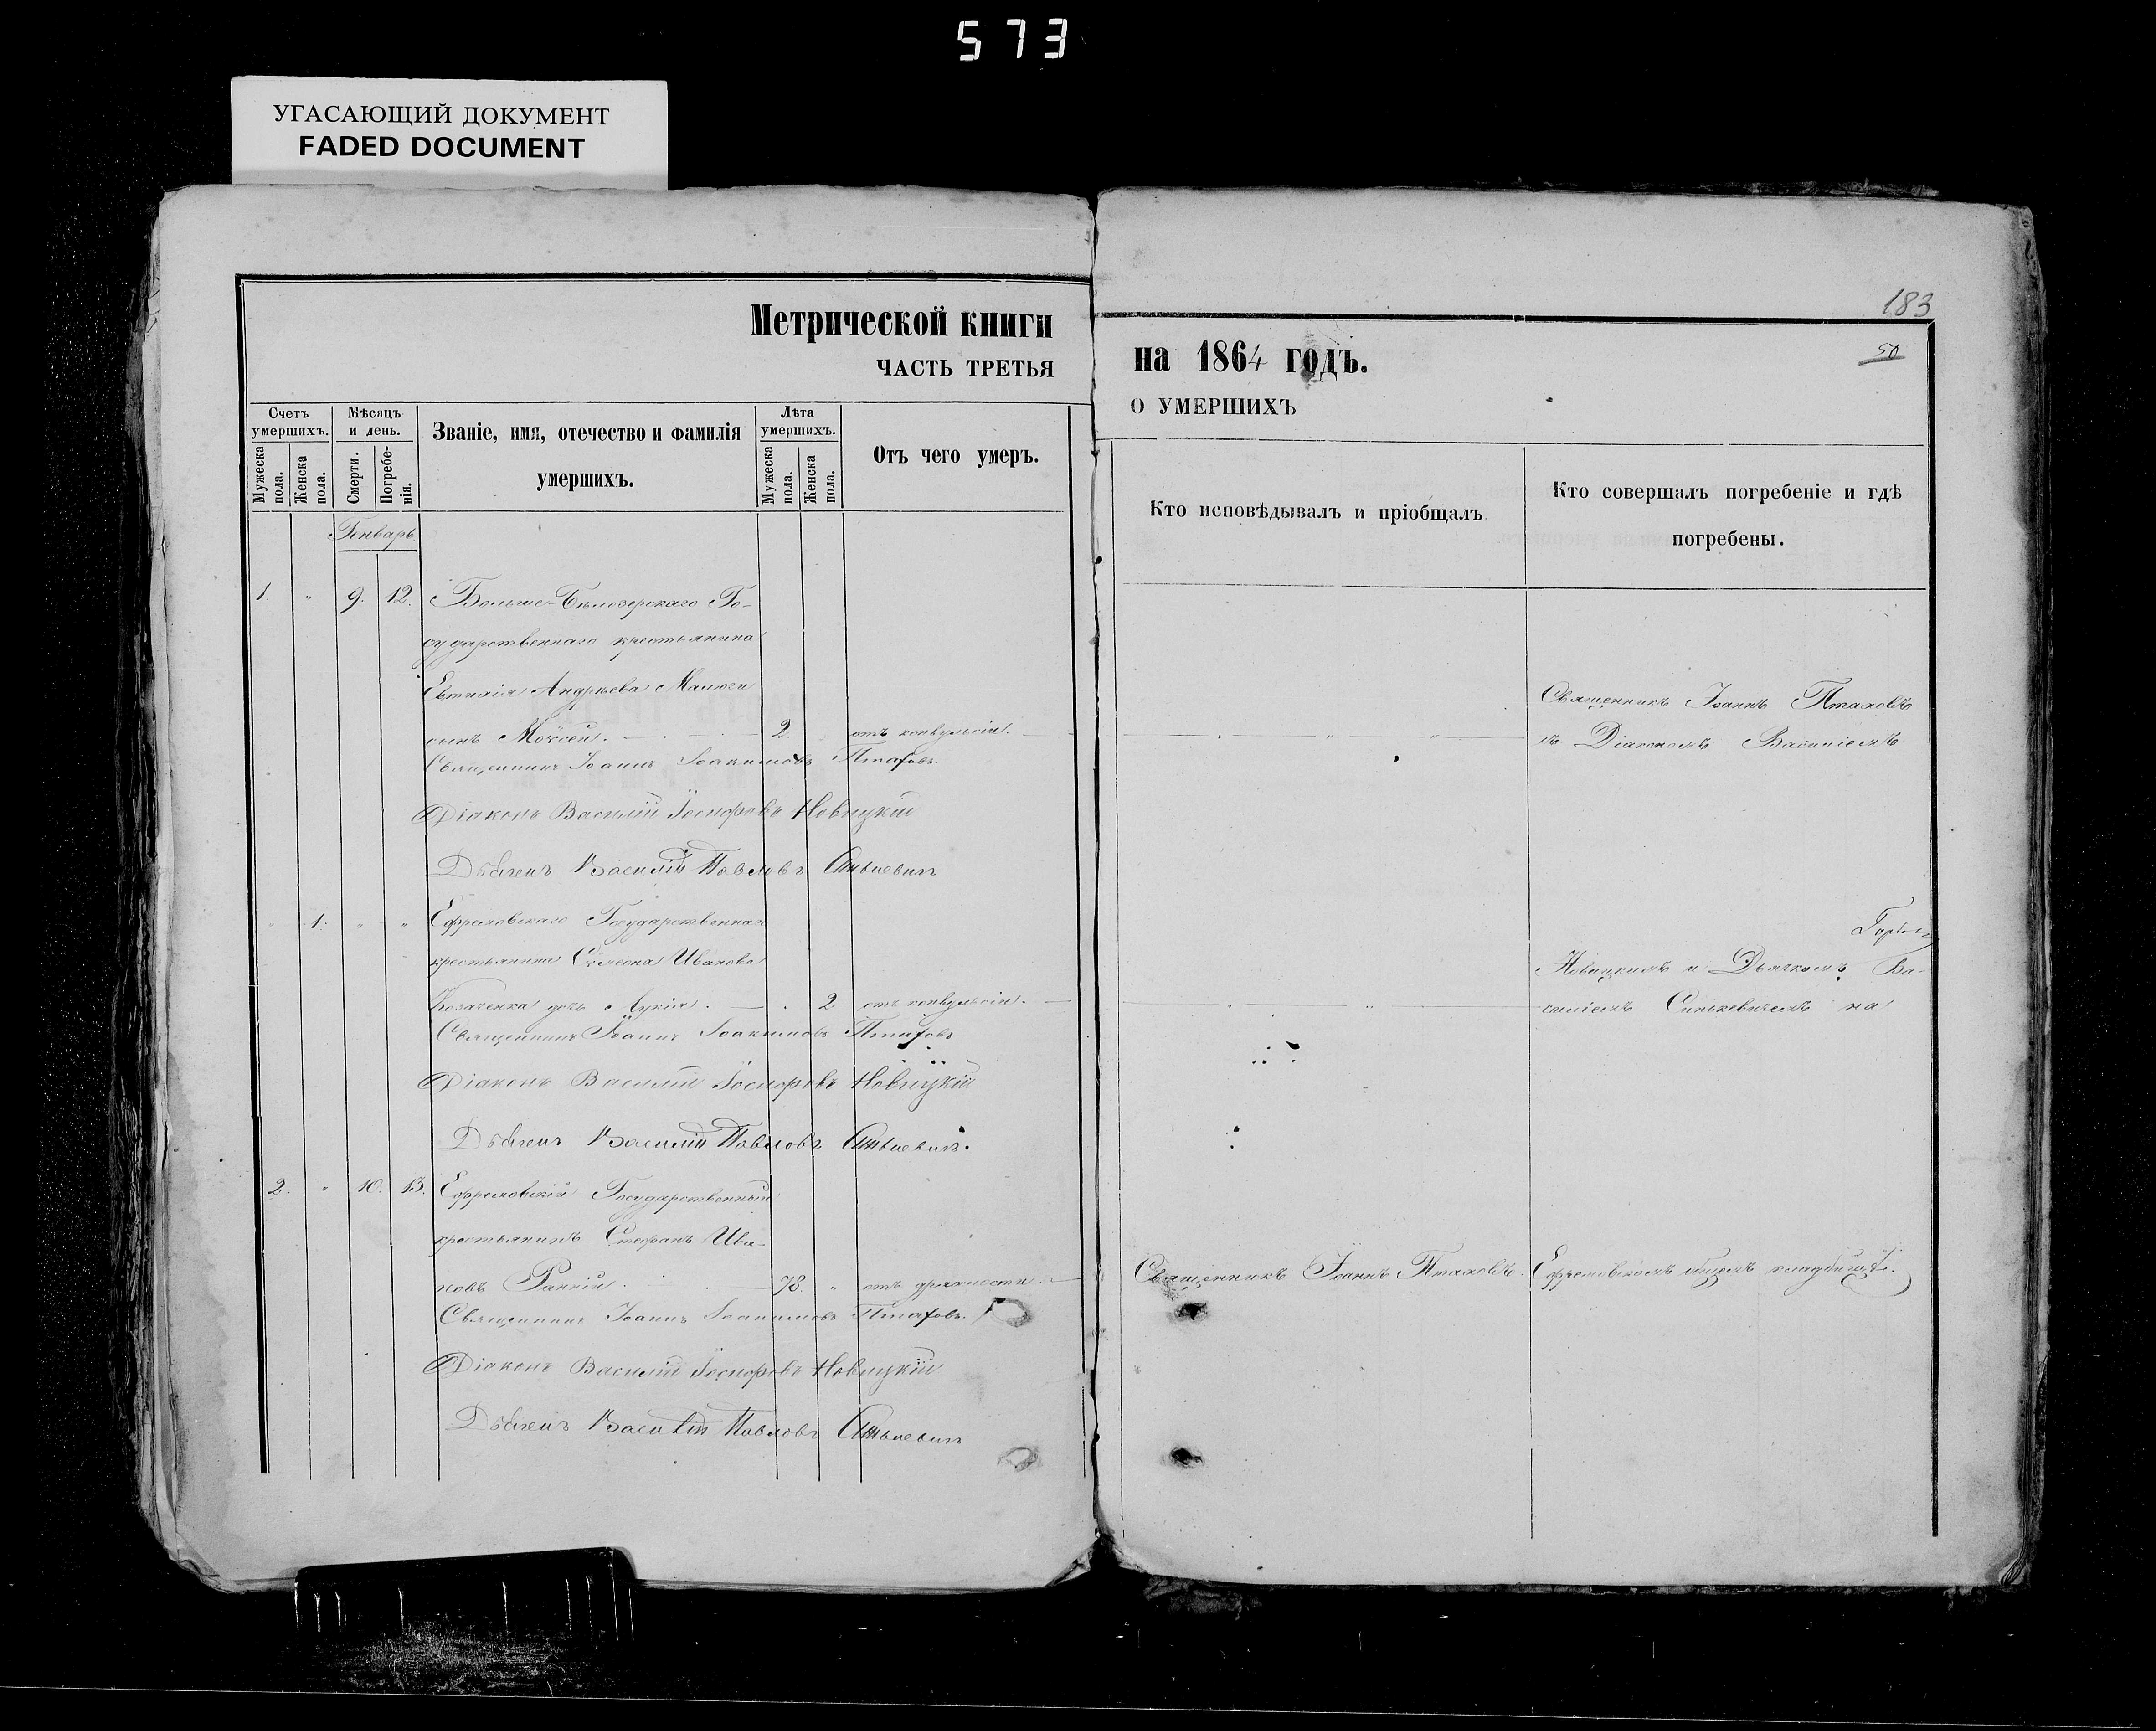 573
УГАСАЮЩИЙ ДОКУМЕНТ
FADED DOCUMENT
Метрической книги
ЧАСТЬ ТРЕТЬЯ
Счетъ умершихъ.
Мужеска пола.
Женска пола.
Мѣсяцъ и день.
Смерти.
Погребенія.
Званіе, имя, отечество и фамилія
умершихъ.
Лѣта умершихъ.
Мужеска пола.
Женска пола.
Отъ чего умеръ.
Январь
1. " 9. 12. Больше-Бѣлозерскаго Го-
сударственнаго крестьянина
Евтихія Андрѣева Малюги
сынъ Моѵсей. 2. отъ конвульсіи.
Священникъ Іоаннъ Іоакимовъ Птаховъ.
Діаконъ Василій Іосифовъ Новицкій
Дьячекъ Василій Павловъ Синькевичъ
" 1. " " Ефремовскаго Государственнаго
крестьянина Иванова
Козаченка дочь Лукія. 2 отъ конвульсіи.
Священникъ Іоаннъ Іоакимовъ Птаховъ
Діаконъ Василій Іосифовъ Новицкій
Дьячекъ Василій Павловъ Синькевичъ.
2. " 10. 13. Ефремовскій Государственный
крестьянинъ Стефанъ Ива-
новъ 78. " отъ дряхлости.
Священникъ Іоаннъ Іоакимовъ Птаховъ.
Діаконъ Василій Іосифовъ Новицкій
Дьячекъ Василій Павловъ Синькевичъ
183
50
на 1864 годъ.
О УМЕРШИХЪ
Кто исповѣдывалъ и пріобщалъ
Кто совершалъ погребеніе и гдѣ
погребены.
Священникъ Іоаннъ Птаховъ
съ Діакономъ Василіемъ
Новицкимъ и Дьячкомъ Ва-
силіемъ Синькевичемъ на
Священникъ Іоаннъ Птаховъ. Ефремовскомъ общемъ кладбищѣ.